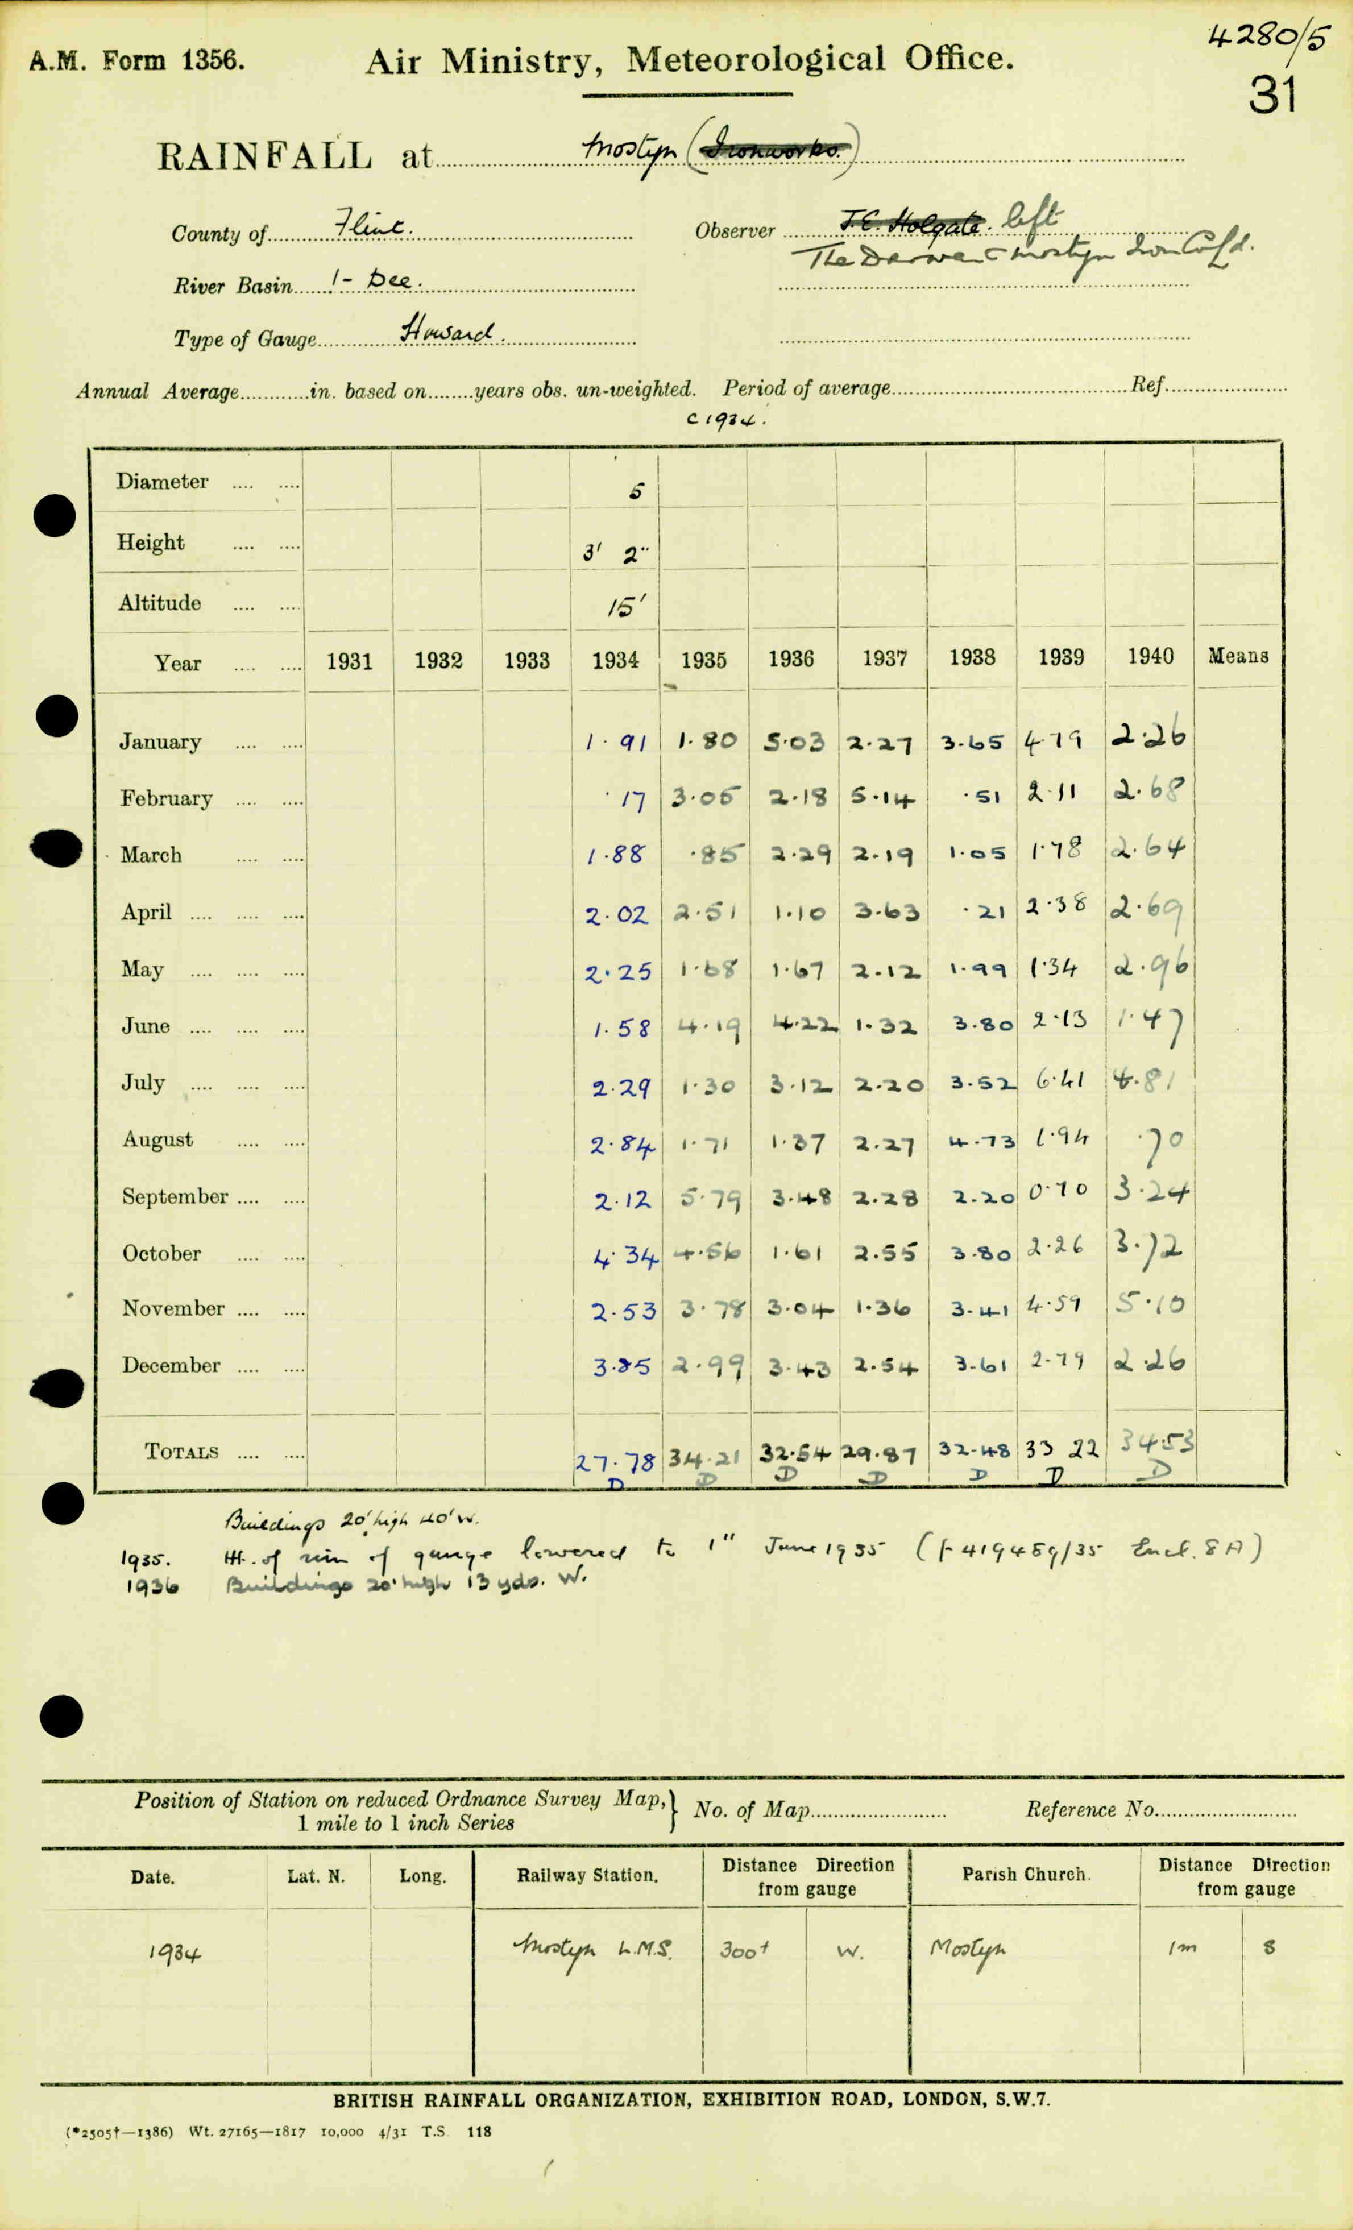 4280/5
A.M. Form 1356. Air Ministry, Meteorological Office.
31
RAINFALL at Mostyn (Ironworks.)
County of Flint. Observer J.E. Holgate. left
The Darwen & Mostyn Iron Co Ld.
River Basin 1- Dee.
Type of Gauge Howard.
Annual Average in. based on years obs. un-weighted. Period of average Ref.
C 1934.
Diameter 5
Height 3' 2"
Altitude 15'
Year 1931 1932 1933 1934 1935 1936 1937 1938 1939 1940 Means
January 1.91 1.80 5.03 2.27 3.65 4.79 2.26
February .17 3.05 2.18 5.14 .51 2.11 2.68
March 1.88 .85 2.29 2.19 1.05 1.78 2.64
April 2.02 2.51 1.10 3.63 .21 2.38 2.69
May 2.25 1.68 1.67 2.12 1.99 1.34 2.96
June 1.58 4.19 4.22 1.32 3.80 2.13 1.47
July 2.29 1.30 3.12 2.20 3.52 6.41 4.81
August 2.84 1.71 1.37 2.27 4.73 1.94 .70
September 2.12 5.79 3.48 2.28 2.20 0.70 3.24
October 4.34 4.56 1.61 2.55 3.80 2.26 3.72
November 2.53 3.78 3.04 1.36 3.41 4.59 5.10
December 3.85 2.99 3.43 2.54 3.61 2.79 2.26
TOTALS 27.78 34.21 32.54 29.87 32.48 33 22 34.53
D D D D D D D
Buildings 20' high 40' W.
1935. Ht. of rim of gauge lowered to 1" June 1935 (f 419459/35 Encl. 8A)
1936 Buildings 20' high 13 yds. W.
Position of Station on reduced Ordnance Survey Map, 1 mile to 1 inch Series } No. of Map Reference No.
Date. Lat. N. Long. Railway Station. Distance Direction from gauge Parish Church. Distance Direction from gauge
1934 Mostyn L.M.S. 300† W. Mostyn 1m S
BRITISH RAINFALL ORGANIZATION, EXHIBITION ROAD, LONDON, S.W.7.
(*2505†—1386) Wt. 27165—1817 10,000 4/31 T.S. 118